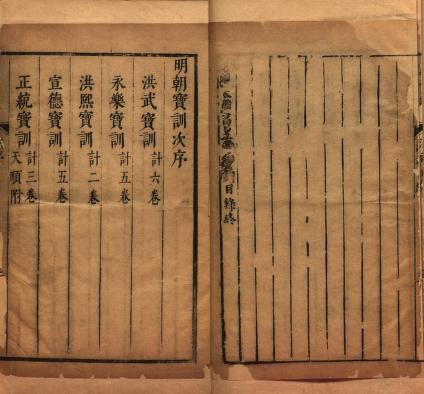 目錄終
明朝寶訓次序
洪武寶訓 計六卷
永樂寶訓 計五卷
洪熙寶訓 計二卷
宣德寶訓 計五卷
正統寶訓 計三卷 天順附